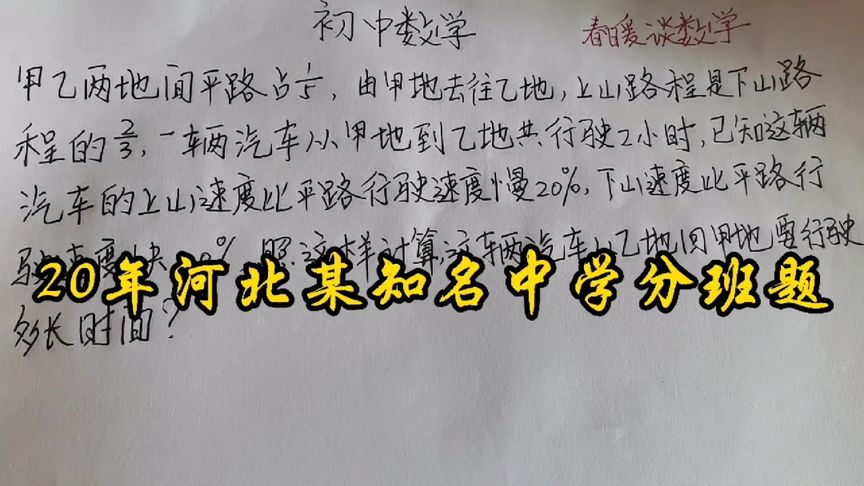 初中数学 春暖谈数学
甲乙两地间平路占1/5，由甲地去往乙地，上山路程是下山路
程的2/3，一辆汽车从甲地到乙地共行驶2小时，已知这辆
汽车的上山速度比平路行驶速度慢20%，下山速度比平路行
驶速度快 0%，照这样计算，这辆汽车从乙地回甲地要行驶
20年河北某知名中学分班题
多长时间？